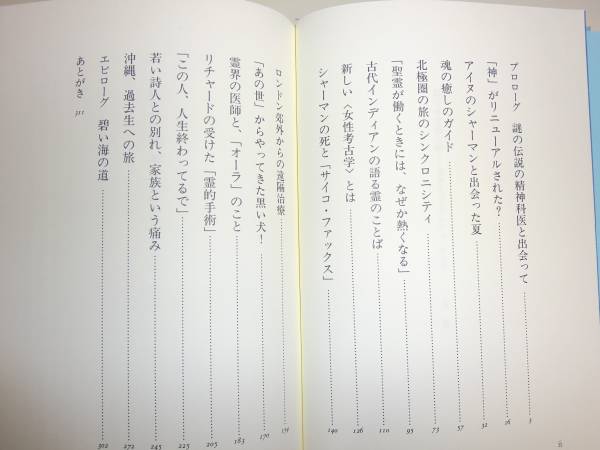 プロローグ 謎の伝説の精神科医と出会って 3
「神」がリニューアルされた? 16
アイヌのシャーマンと出会った夏 32
魂の癒しのガイド 57
北極圏の旅のシンクロニシティ 73
「聖霊が働くときには、なぜか熱くなる」 95
古代インディアンの語る霊のことば 110
新しい〈女性考古学〉とは 126
シャーマンの死と「サイコ・ファックス」 140
ロンドン郊外からの遠隔治療
「あの世」からやってきた黒い犬! 170
霊界の医師と、「オーラ」のこと 183
リチャードの受けた「霊的手術」 205
「この人、人生終わってるで」 225
若い詩人との別れ、家族という痛み 245
沖縄、過去生への旅 272
エピローグ 碧い海の道 302
あとがき 311